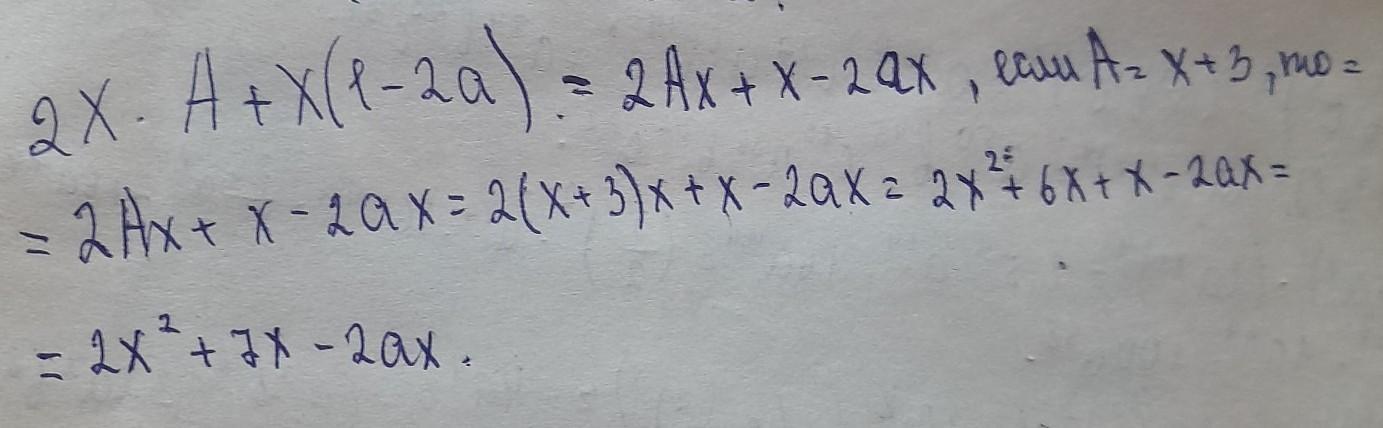 2x · A + x(1 - 2a) = 2Ax + x - 2ax, если A = x + 3, то =
= 2Ax + x - 2ax = 2(x + 3)x + x - 2ax = 2x² + 6x + x - 2ax =
= 2x² + 7x - 2ax.